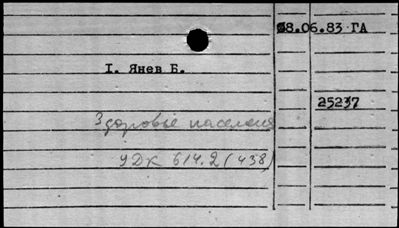 08.06.83 ГА
I. Янев Б.
25237
Здоровье населения
УДК 614.2(438)